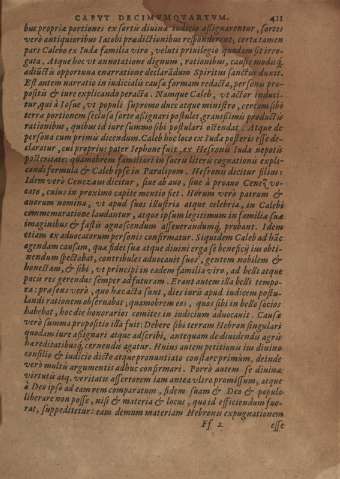 CAPVT DECIMVMQVARTVM. 411
bus propriæ portiones ex sortis diuinæ iudicio assignarentur, sortes
verò antiquioribus Iacobi prædictionibus responderent, certa tamen
pars Calebo ex Iuda familia viro, veluti priuilegio quodam sit irro-
gata. Atque hoc vt annotatione dignum, rationibus, causæ modisq́;
adiũctis opportuna enarratione declarãdum Spiritus sanctus duxit.
Est autem narratio in iudicialis causæ formam redacta, personis pro-
positis & iure explicando peracta. Namque Caleb, vt actor induci-
tur, qui à Iosue, vt populi supremo duce atque ministro, certam sibi
terra portionem seclusa sorte assignari postulet, transmissis productis
rationibus, quibus id iure summo sibi postulari ostendat. Atque de
persona cum primis dicendum. Caleb hoc loco ex Iuda posteris esse de-
claratur, cui proprius pater Iephone fuit, ex Hesronis Iuda nepotis
posteritate: quamobrem familiari in sacris literis cognationis expli-
candi formula & Caleb ipse in Paralipom. Hesronis dicitur filius:
Idem verò Cenezæus dicitur, siue ab auo, siue à proauo Cenez vo-
cato, cuius in proximo capite mentio fiet. Horum verò patrum &
auorum nomina, vt apud suos illustria atque celebria, in Calebi
commemoratione laudantur, atque ipsum legitimum in familia suæ
imaginibus & fastis agnoscendum asseuerandumq́; probant. Idem
etiam ex aduocatorum personis confirmatur. Siquidem Caleb ad hãc
agendam causam, quæ fidei suæ atque diuini erga se beneficij ius obti-
nendum spectabat, contribules aduocauit suos, gentem nobilem &
honestam, & sibi, vt principi in eadem familia viro, ad belli atque
pacis res gerendas semper adsuturam. Erant autem illa belli tempo-
ra: profestæ verò, quo hæc acta sunt, dies iuris apud iudicem postu-
landi rationem obseruabat; quamobrem eos, quos sibi in bello socios
habebat, hoc die honorarios comites in iudicium aduocauit. Causæ
verò summa propositio illa fuit: Debere sibi terram Hebron singulari
quodam iure assignari atque adscribi, antequam de diuidendis agris
hæreditatibusq́; cernendis agatur. Huius autem petitionis ius diuino
consilio & iudicio dicto atque pronuntiato constare primum, deinde
verò multis argumentis adhuc confirmari. Porrò autem se diuinæ
virtutis atq. veritatis assertorem iam antea vltro promissum, atque
à Deo ipso ad eam rem comparatum, fidem suam & Deo & populo
liberare non posse, nisi & materia & locus, quo id efficiendum fue-
rat, suppeditetur: eam demum materiam Hebronis expugnationem
Ff 2 esse